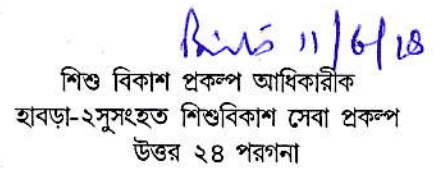 11/6/18
শিশু বিকাশ প্রকল্প আধিকারীক
হাবড়া-২সুসংহত শিশুবিকাশ সেবা প্রকল্প
উত্তর ২৪ পরগনা